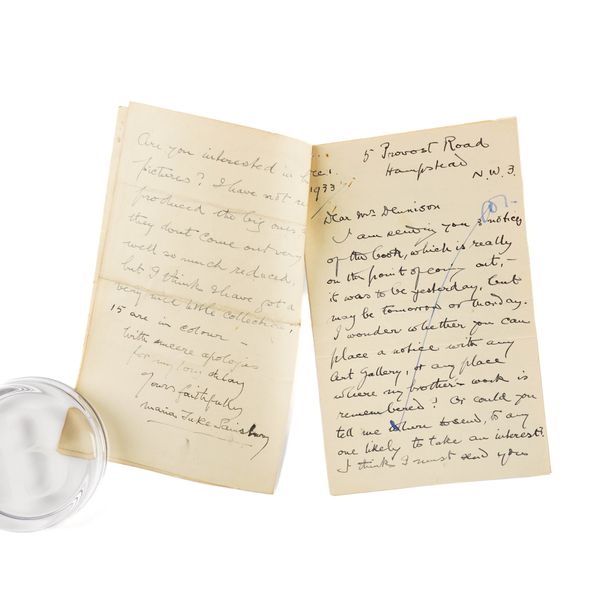 Are you interested in
pictures? I have not re
produced the big ones a
they dont come out very
well so much reduced,
but I think I have got a
very nice little collection,
15 are in colour –
With sincere apologies
for my long delay
Yours faithfully
Maria Tuke Sainsbury
5 Provost Road
Hampstead
N.W.3.
1933
Dear Mr Dennison
I am sending you a notice
of the book, which is really
on the point of coming out, –
it was to be yesterday, but
may be tomorrow or Monday.
I wonder whether you can
place a notice with any
Art Gallery, or any place
where my brother's work is
remembered? Or could you
tell me where to send, to any
one likely to take an interest?
I think I must send you